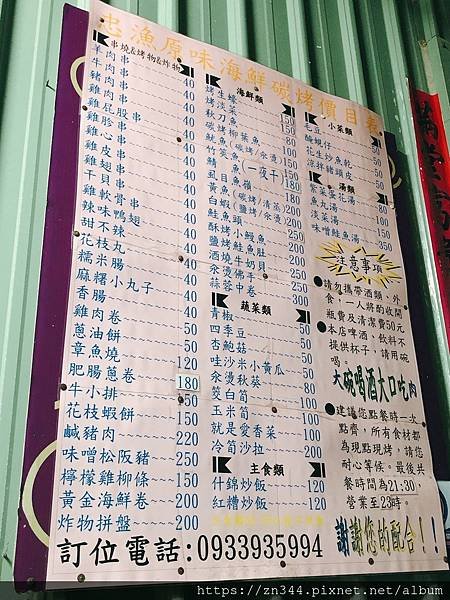 忠漁原味海鮮碳烤價目表
串燒&烤物&炸物
羊肉串 40
牛肉串 40
豬肉串 40
雞肉串 40
雞屁股串 40
雞胗串 40
雞心串 40
雞皮串 40
雞翅串 40
干貝串 40
雞軟骨串 40
辣味鴨翅
甜不辣
花枝丸
糯米腸
麻糬小丸子
香腸
雞肉卷
蔥油餅
章魚燒
肥腸蔥卷 120
牛小排 180
花枝蝦餅 150
鹹豬肉 220
味噌松阪豬 250
檸檬雞柳條 150
黃金海鮮卷 200
炸物拼盤 200
海鮮類
烤生蠔
烤淡菜
秋刀魚
碳烤柳葉魚
魷魚(碳烤/汆燙)150
竹筴魚
鯖魚(一夜干)180
虱目魚嶺 180
黃魚(碳烤/清蒸)200
白蝦(鹽烤/汆燙)200
鮭魚頭
酥烤小鰻魚 200
鹽烤鮭魚肚 200
酒燒牛奶貝 250
汆燙佛手 250
蒜蓉中卷 300
蔬菜類
青椒 50
四季豆 50
杏鮑菇 50
哇沙米小黃瓜 50
汆燙秋葵 80
筊白筍 100
玉米筍 100
就是愛香菜 100
冷筍沙拉 200
主食類
什錦炒飯 120
紅糟炒飯 120
小菜類
毛豆 50
醃蜆仔 50
花生炒魚乾 50
涼拌豬頭皮 50
湯類
紫菜蛋花湯 80
魚丸湯 100
淡菜湯 150
味噌鮭魚湯 350
注意事項
●請勿攜帶酒類、外
食,一人將酌收開
瓶費及清潔費50元
●本店啤酒、飲料不
提供杯子,請用碗
喝。
大碗喝酒大口吃肉
●建議您點餐時一次
點齊,所有食材都
為現點現烤,請您
耐心等候。最後共
餐時間為21:30,
營業至23時。
謝謝您的配合!!
訂位電話:0933935994
https://zn344.pixnet.net/album